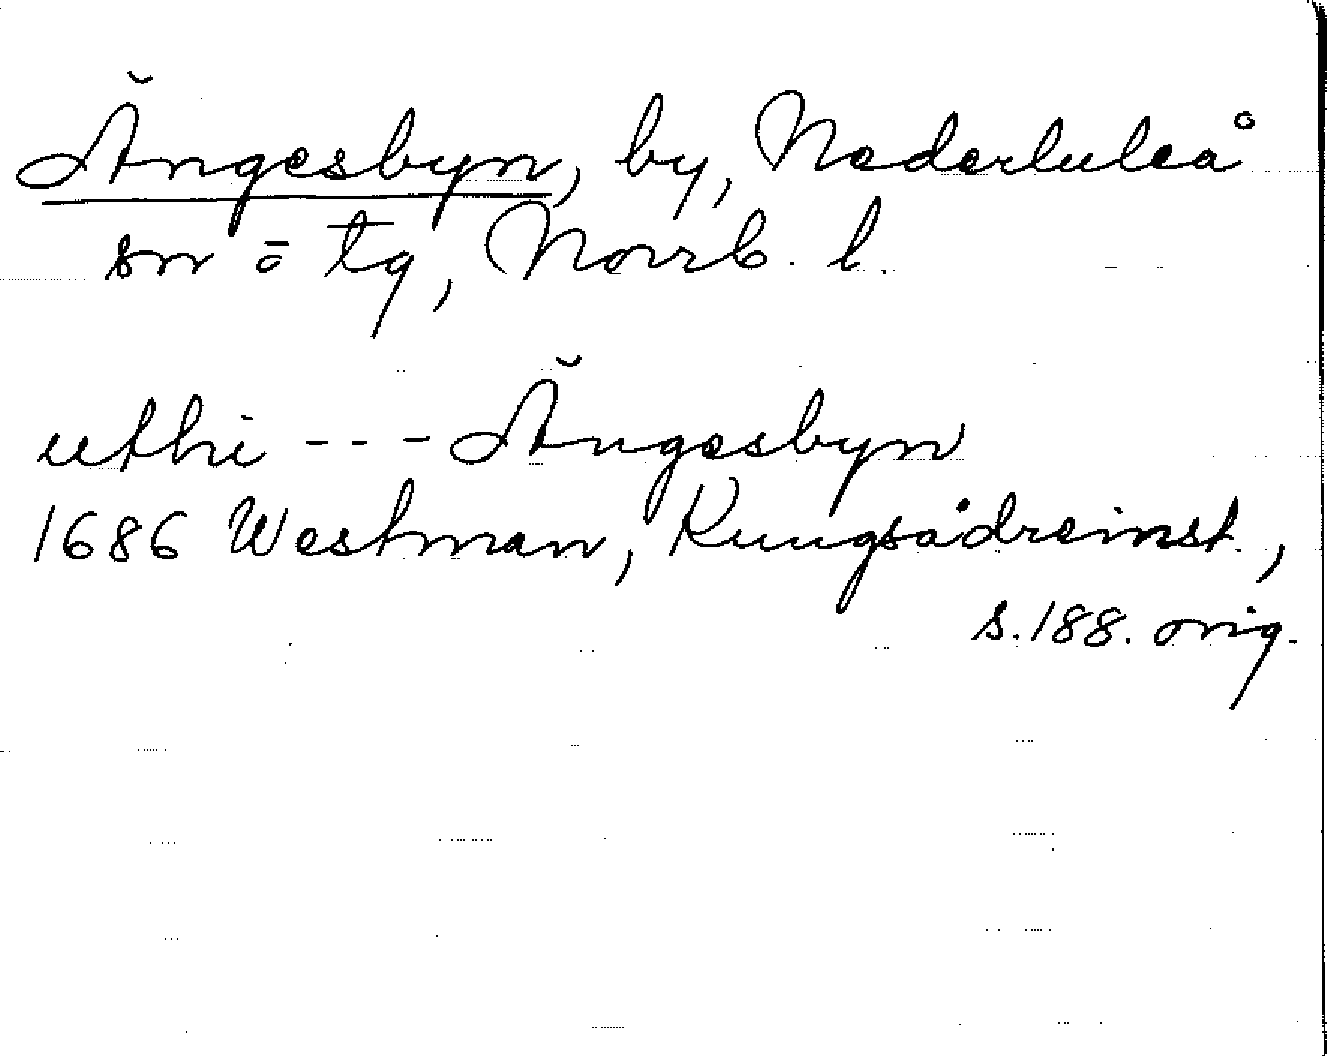 Ängesbyn, by, Nederluleå
sn o tg, Norrb. l.
uthi --- Ängesbyn
1686 Westman, Kungsådreinst.,
s. 188. orig.